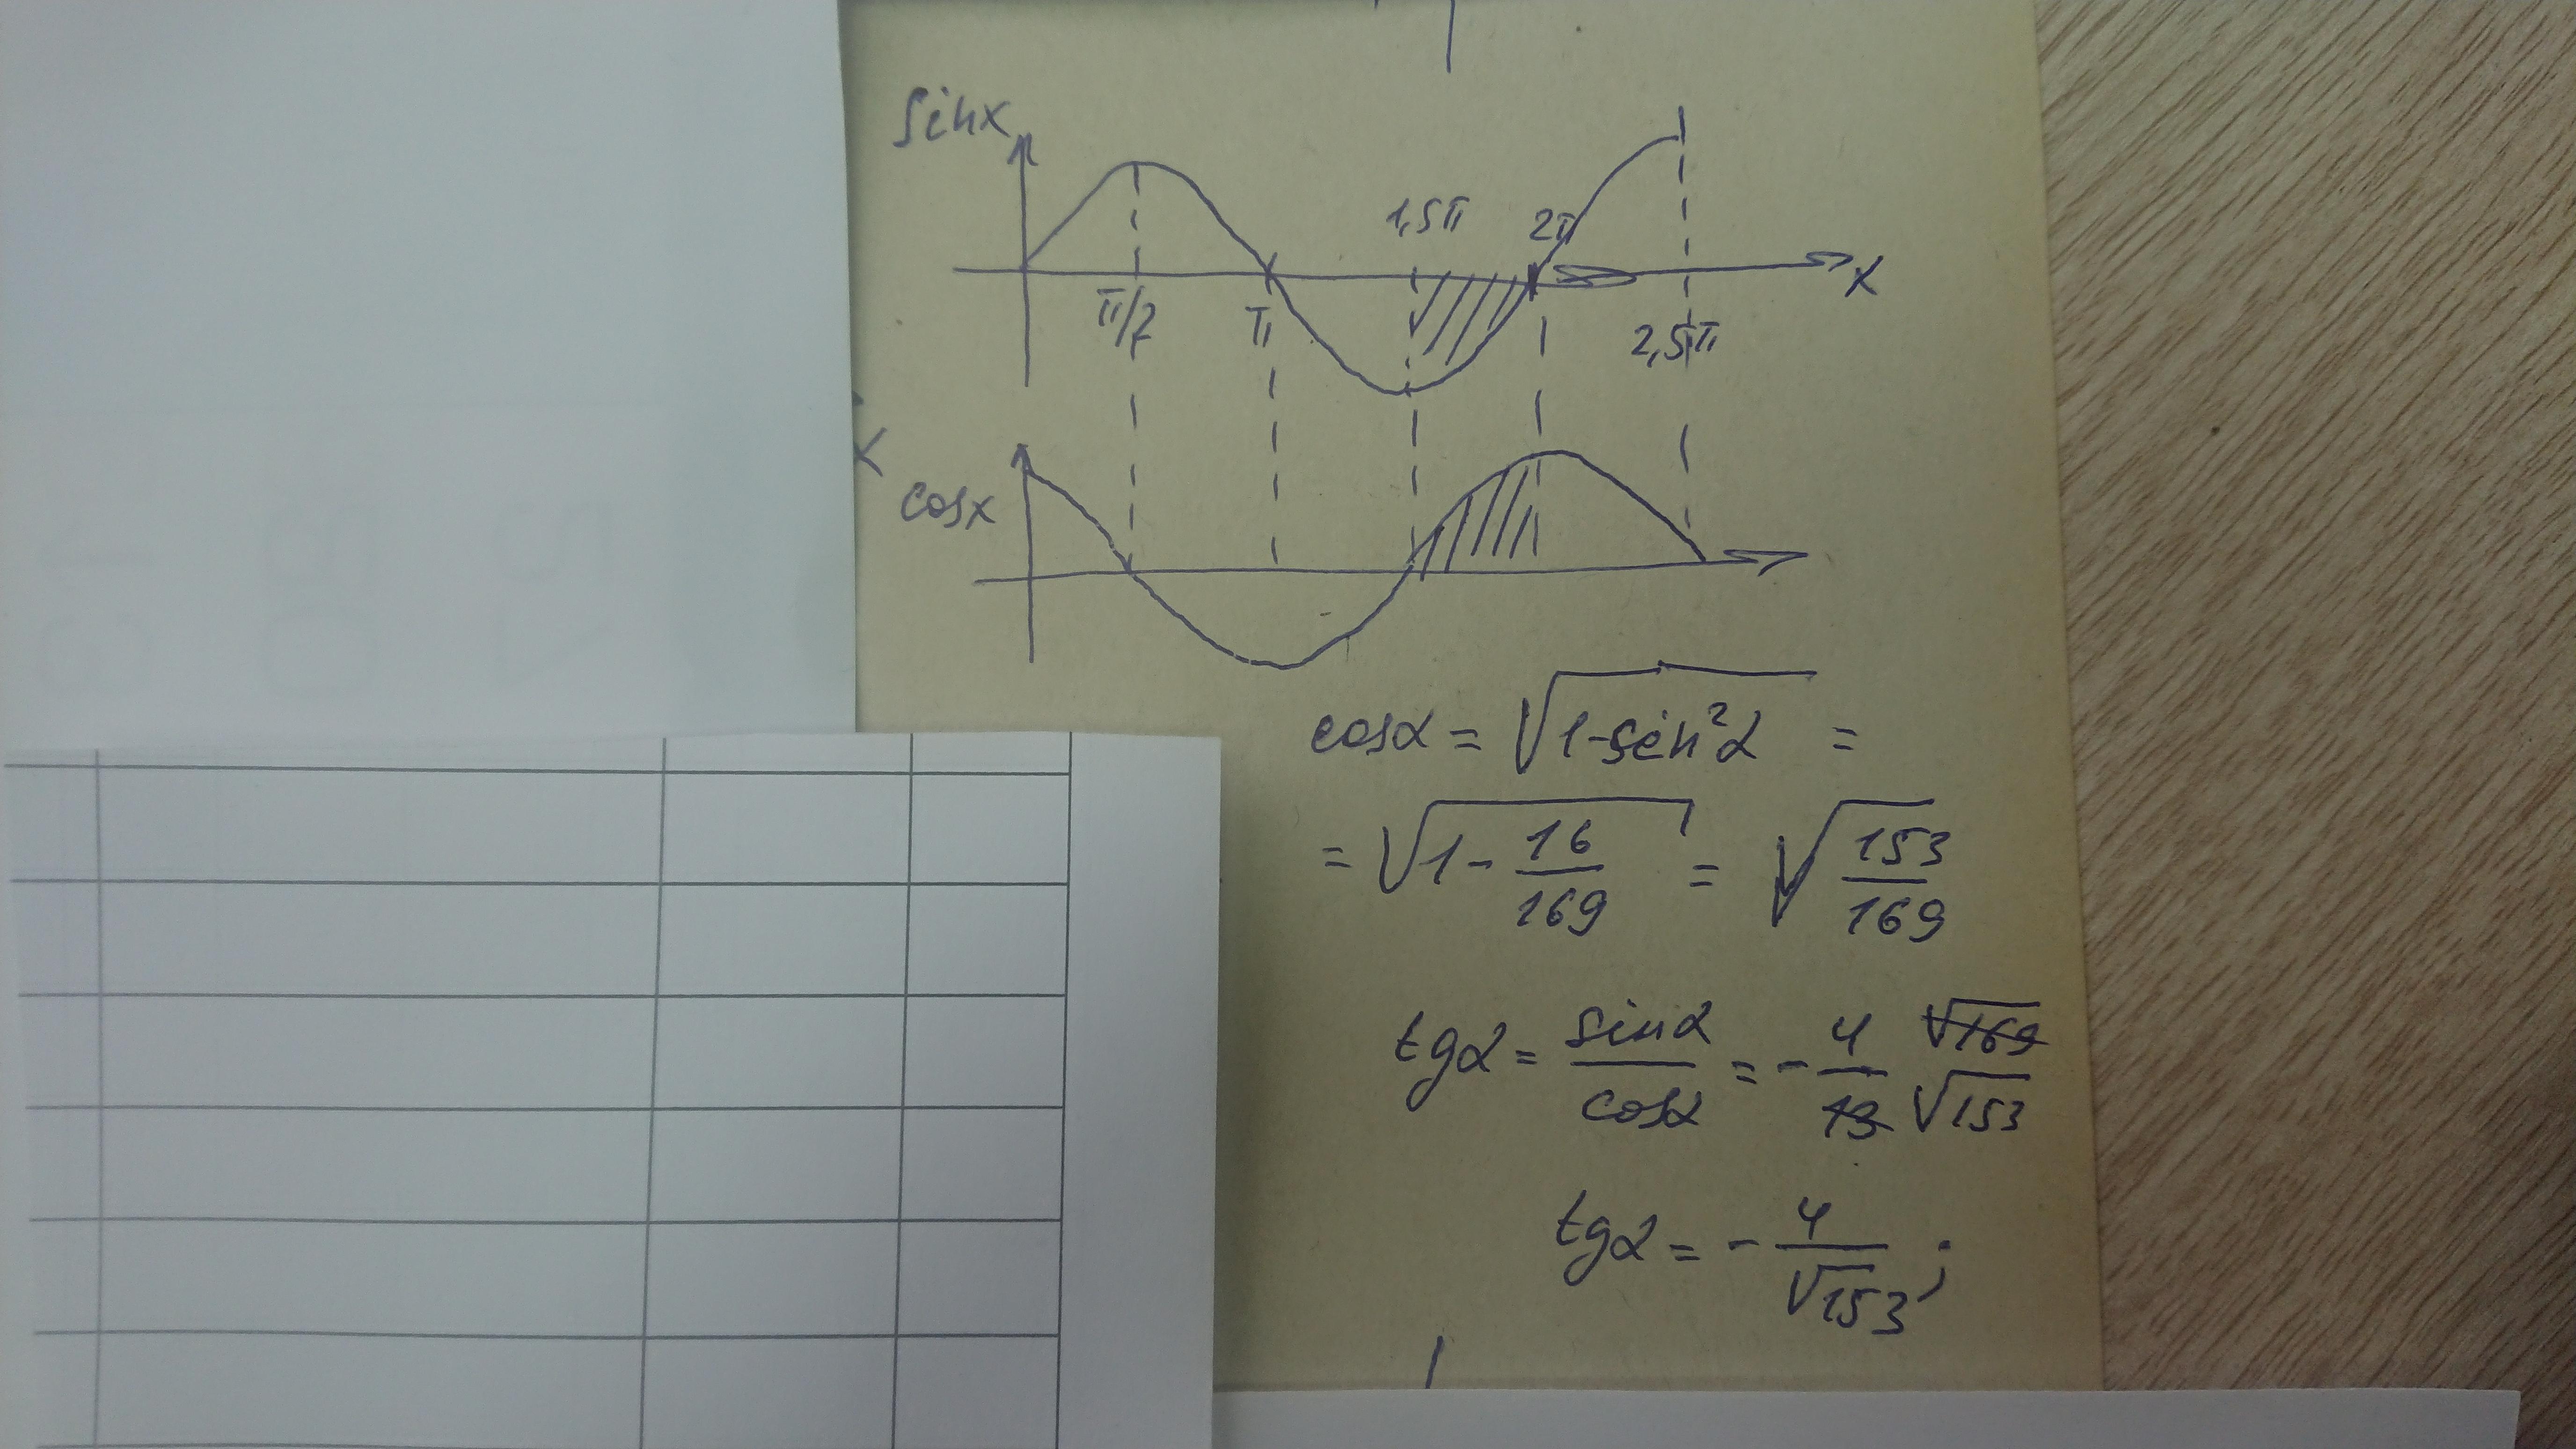 sinx
1,5π 2π
x
π/2 π 2,5π
x
cosx
cosα = √1-sin²α =
= √1- 16/169 = √153/169
tgα = sinα/cosα = - 4/13 √169/√153
tgα = - 4/√153 ;